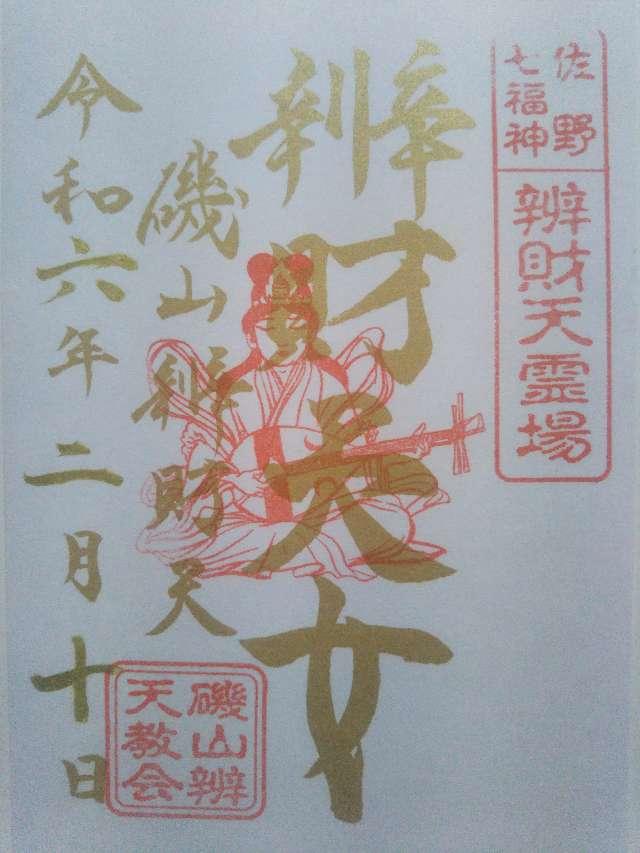 佐野
七福神
辨財天霊場
辨財天女
磯山辨財天
令和六年二月十日
磯山辨
天教会